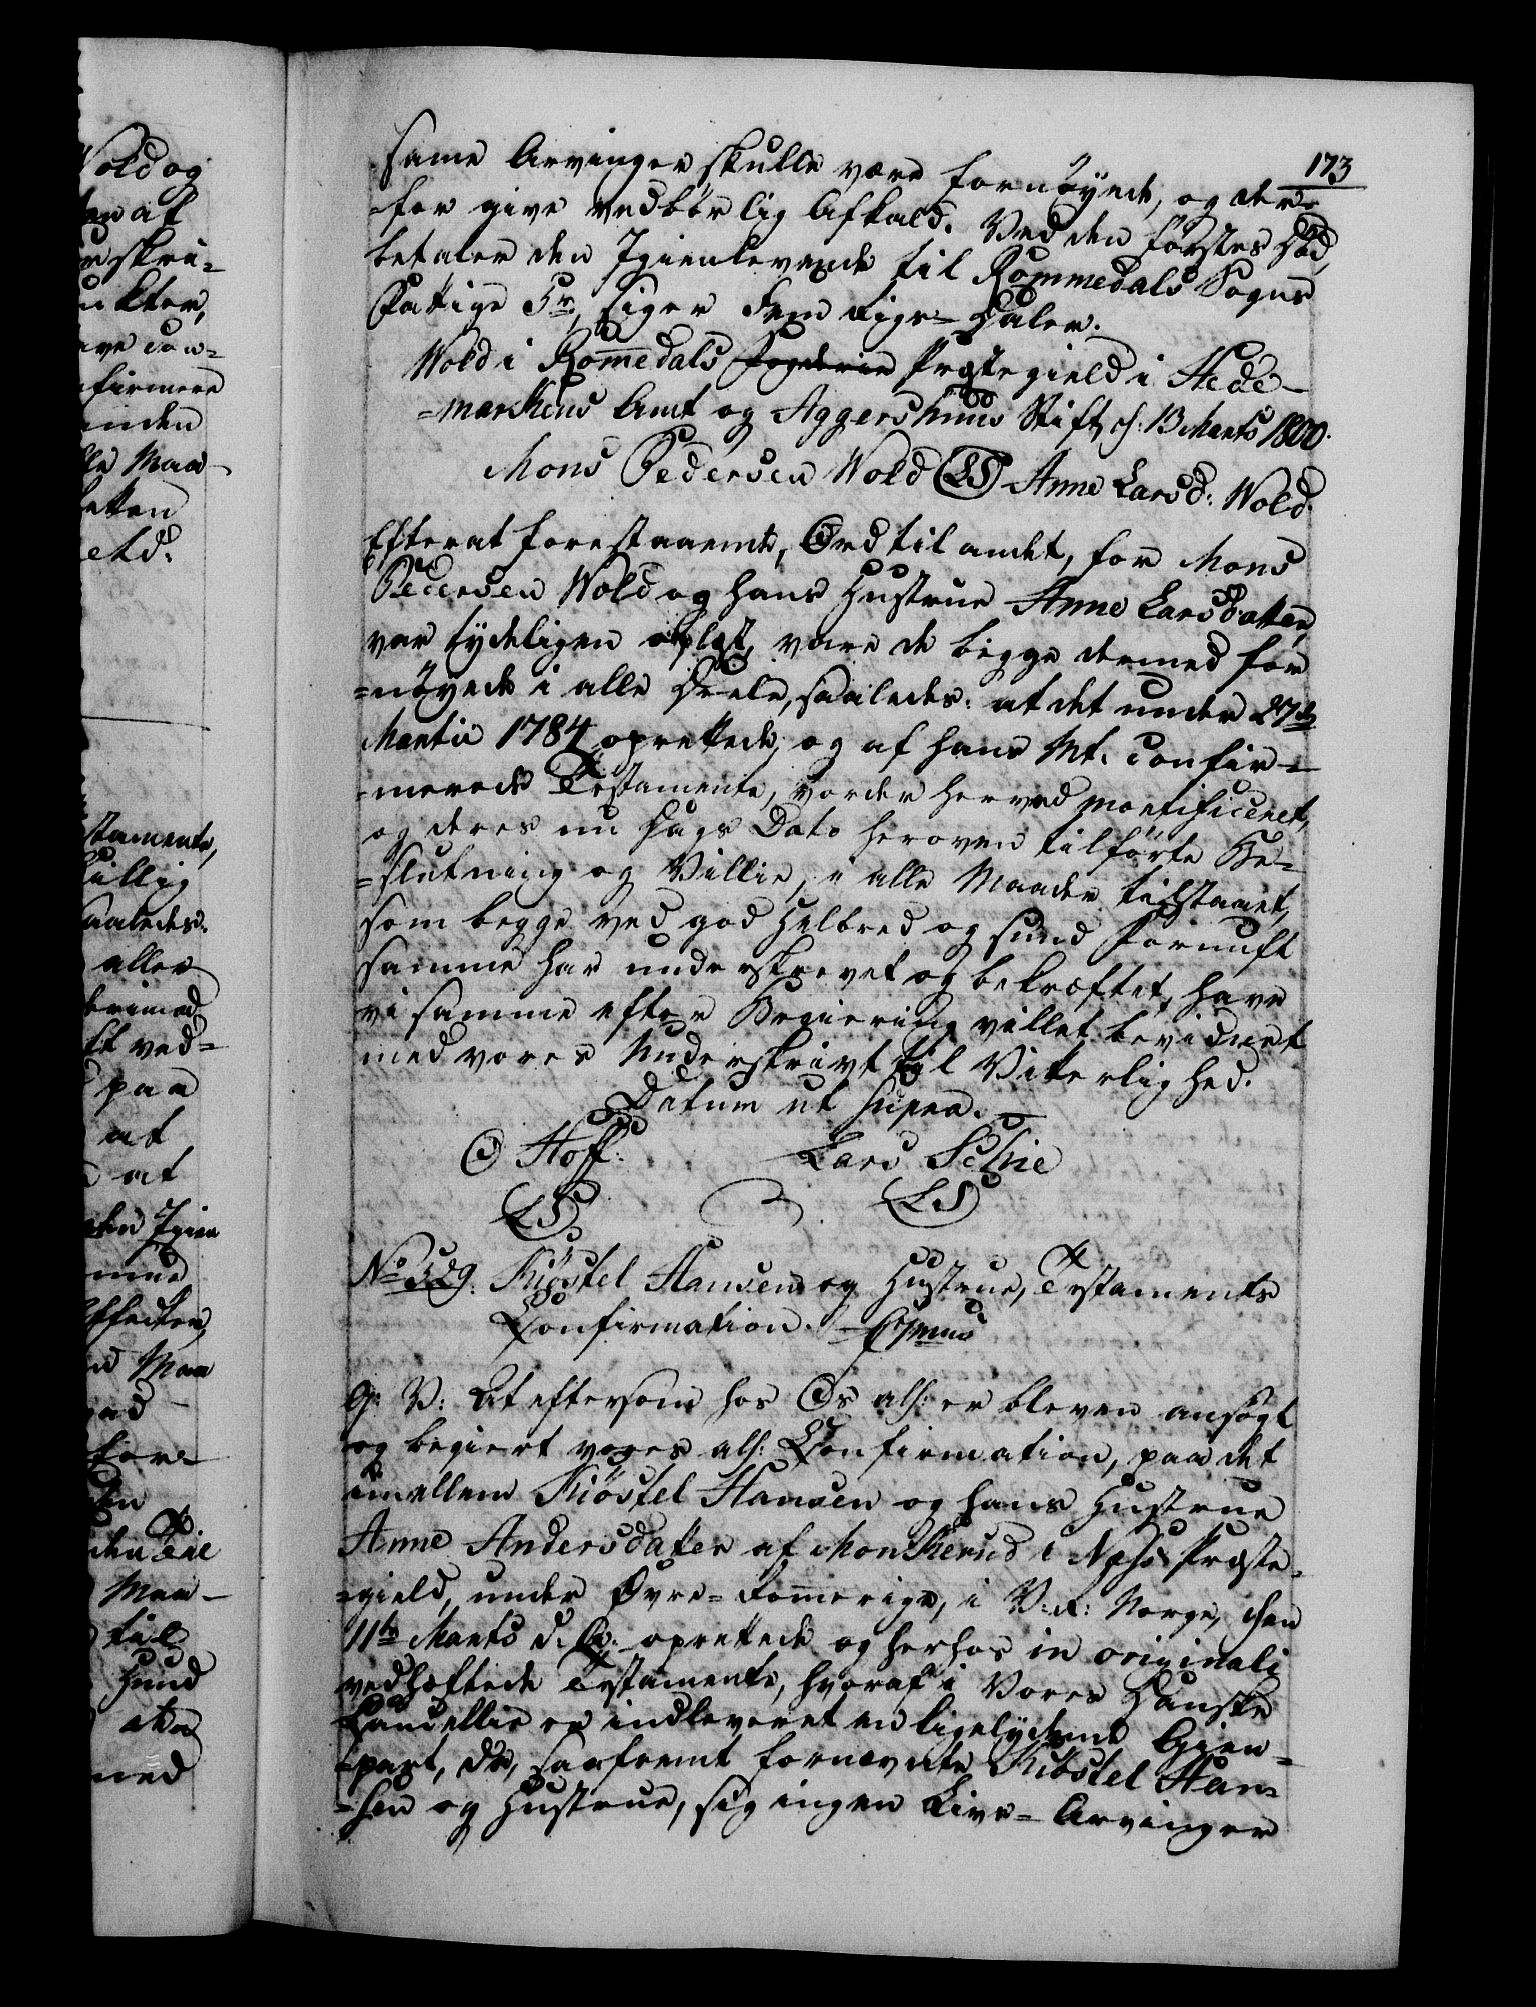 173
same Arvinger skulle være fornøyede, og der-
-for give vedbørlig Afkald. Ved den førstes Død,
betaler den Igienlevende til Rommedals Sogns
Fattige 5 rd, siger Fem Rigs-Daler.
Wold i Romedals Fogderie Præstegield i Hede-
=markens Amt og Aggershuus Stift, d: 13 Marts 1800.
Mons Pedersen Wold (LS) Anne Larsd: Wold.
Efterat forestaaende, Ord til andet, for Mons
Pedersen Wold og hans Hustrue Anne Larsdatter,
var tydeligen oplæst, vare de begge dermed for
=nøyede i alle Deele, saaledes: at det under 27de
Martii 1784 oprettede, og af hans Mt. confir-
=merede Testamente, vorder herved mortificeret,
og deres nu Dags Dato heroven tilførte Be-
=slutning og Villie, i alle Maader tilstaaet,
som begge ved god Helbred og sund Fornuft
samme har underskrevet og bekræftet, have
vi samme efter Begiering villet bevidnet
med vores Underskrivt til Vitterlighed.
Datum ut supra.
O Hoff. Lars Selvie
(LS) (LS)
No 529. Kiøstel Hansen og Hustrue, Testaments
Confirmation.
G: V: At eftersom hos Os allr: er bleven ansøgt
og begiert vores allr: Confirmation, paa det
imellem Kiøstel Hansen og hans Hustrue
Anne Andersdatter af Monkerud i Næss Præste-
=gield, under Øvre-Romerige, i V: R: Norge, den
11te Marts d. A. oprettede og herhos in originali
vedhæftede Testamente, hvoraf i Vores Danske
Cancellie er indleveret en ligelydende Gien-
=part, der, saafremt fornevnte Kiøstel Han-
=sen og Hustrue, sig ingen Livs-Arvinger
Wold og
-
den
paa
at
at
Maa
til
med